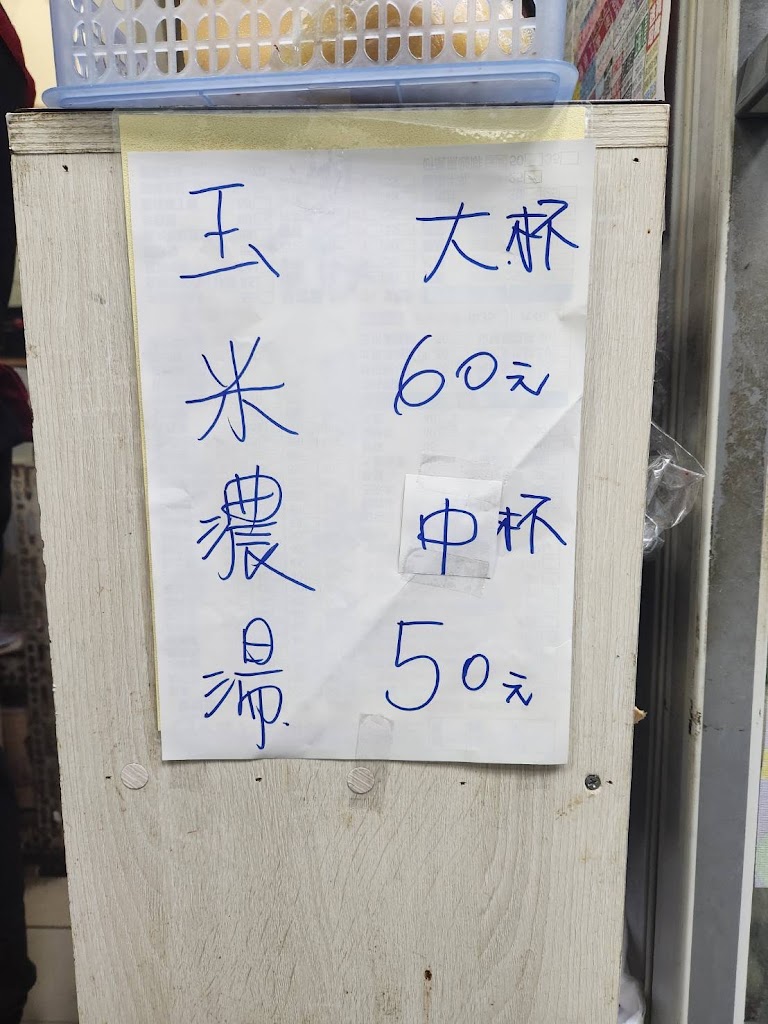 玉米濃湯
大杯
60元
中杯
50元